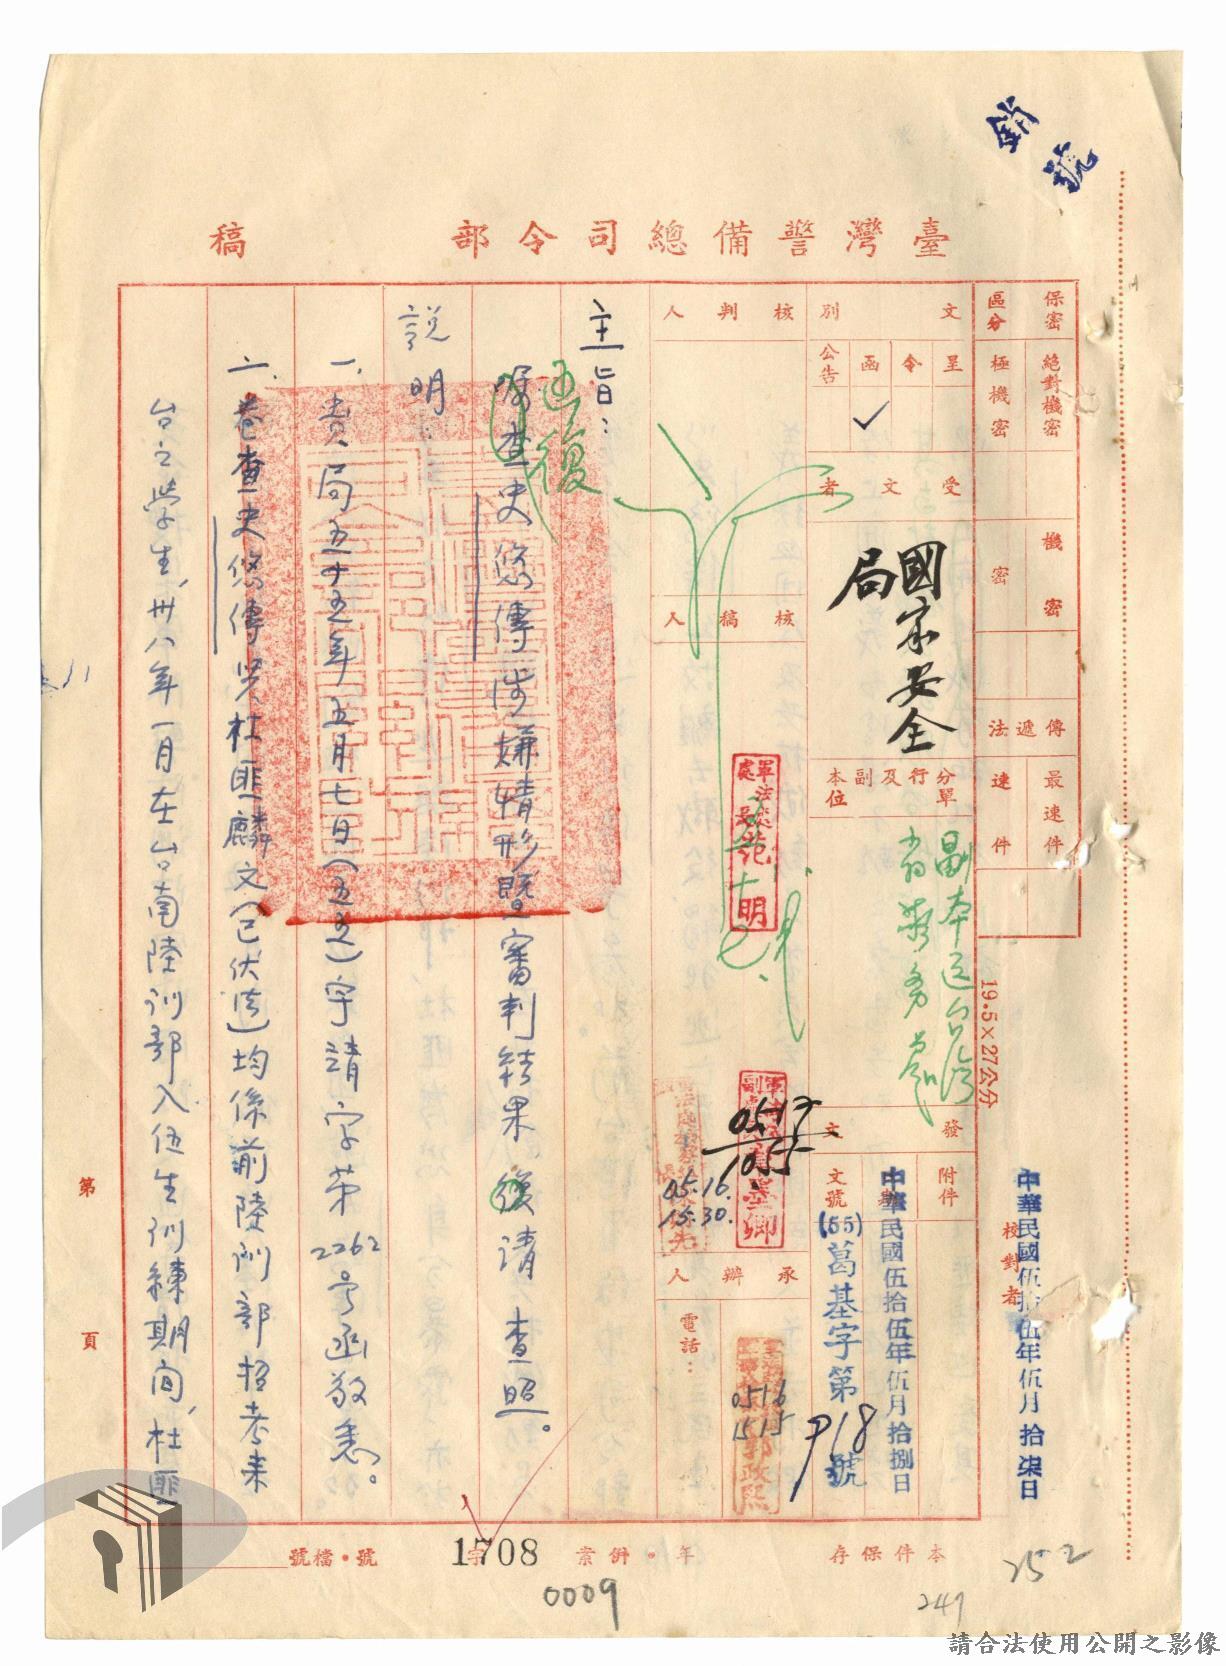 銷號
臺灣警備總司令部 稿
保密區分
絕對機密
極機密
機密
密
傳遞法
最速件
速件
19.5×27公分
中華民國伍拾伍年伍月拾柒日
校對者
文別
呈
令
函 ✓
公告
受文者
國家安全局
分行及副本單位
副本送台灣省警務處
發文
附件
中華民國伍拾伍年伍月拾捌日
文號
(55)葛基字第918號
核判人
核稿人
承辦人
電話：
0517
1055
05.16.
15.30.
0516
1515
郭政熙
主旨：
函復
囑查史悠傳涉嫌情形暨審判結果復請 查照。
說明：
一、貴局五十五年五月七日(五五)字請字第2262号函敬悉。
二、卷查史悠傳與杜匪麟文(已伏法)均係前陸訓部招考來
台之學生，卅八年一月在台南陸訓部入伍生訓練期间，杜匪
第 頁
本件保存 年・併案 1708 號・檔號
0009
249
252
請合法使用公開之影像